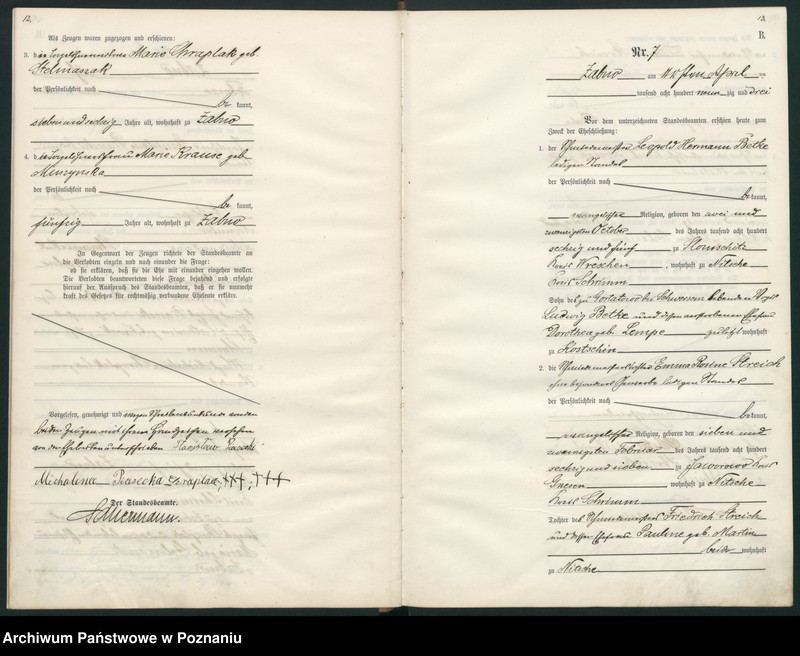 12.
Als Zeugen waren zugezogen und erschienen:
3. die Marie Chraplak geb.
Stelmaszak
der Persönlichkeit nach
be kannt,
siebenundsechzig Jahre alt, wohnhaft zu Zabno
4. die Marie Krause geb.
Muszynska
der Persönlichkeit nach
be kannt,
fünfzig Jahre alt, wohnhaft zu Zabno
In Gegenwart der Zeugen richtete der Standesbeamte an
die Verlobten einzeln und nach einander die Frage:
ob sie erklären, daß sie die Ehe mit einander eingehen wollen.
Die Verlobten beantworteten diese Frage bejahend und erfolgte
hierauf der Ausspruch des Standesbeamten, daß er sie nunmehr
kraft des Gesetzes für rechtmäßig verbundene Eheleute erkläre.
Vorgelesen, genehmigt und wegen Schreibensunkunde von den
beiden Zeugen mit ihrem Handzeichen versehen
von den Eheleuten unterschrieben
Michalina Piasecka Chraplak, +++, +++
Der Standesbeamte.
13.
B.
Nr. 7
Zabno am April
tausend acht hundert neun zig und drei
Vor dem unterzeichneten Standesbeamten erschien heute zum
Zweck der Eheschließung:
1. der Schmiedemeister Leopold Hermann Betke
ledigen Standes
der Persönlichkeit nach
be kannt,
evangelischer Religion, geboren den zwei und
zwanzigsten October des Jahres tausend acht hundert
sechzig und fünf zu
Kreis Wreschen, wohnhaft zu Nitsche
Kreis Schrimm
Sohn des zu bei Schwersenz lebenden
Ludwig Betke und dessen verstorbenen Ehefrau
Dorothea geb. Lempe zuletzt wohnhaft
zu Kostschin
2. die Schmiedemeistertochter Emma Rosine Streich
ohne besonderes Gewerbe ledigen Standes
der Persönlichkeit nach
be kannt,
evangelischer Religion, geboren den sieben und
zwanzigsten Februar des Jahres tausend acht hundert
sechzig und sieben zu Jaworowo Kreis
Gnesen, wohnhaft zu Nitsche
Kreis Schrimm
Tochter des Schmiedemeisters Friedrich Streich
und dessen Ehefrau Pauline geb. Martin
beide wohnhaft
zu Nitsche
Archiwum Państwowe w Poznaniu